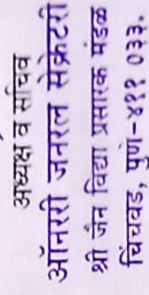 अध्यक्ष व सचिव
ऑनररी जनरल सेक्रेटरी
श्री जैन विद्या प्रसारक मंडळ
चिंचवड, पुणे-४११ ०३३.